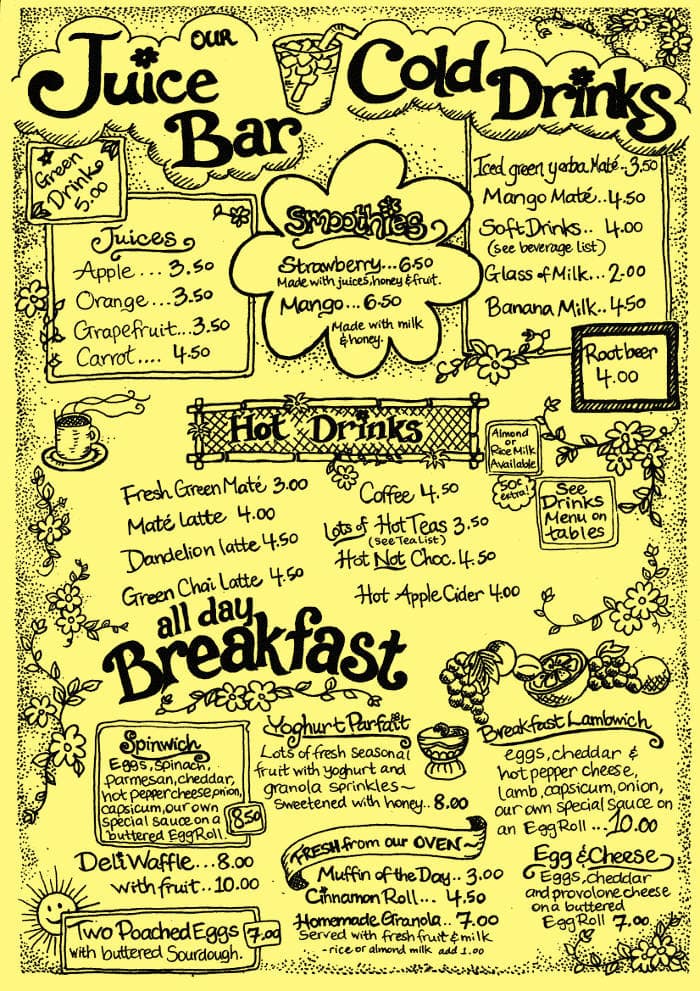 OUR
Juice
Bar
Cold Drinks
Green
Drink
5.00
Juices
Apple ... 3.50
Orange...3.50
Grapefruit...3.50
Carrot.... 4.50
Smoothies
Strawberry...6.50
Made with juices, honey & fruit.
Mango... 6.50
Made with milk
& honey.
Iced green yerba Maté..3.50
Mango Maté..4.50
Soft Drinks.. 4.00
(see beverage list)
Glass of Milk...2.00
Banana Milk..4.50
Rootbeer
4.00
Hot Drinks
Almond
or
Rice Milk
Available
50¢
extra!
See
Drinks
Menu on
tables
Fresh Green Maté 3.00
Maté Latte 4.00
Dandelion latte 4.50
Green Chai Latte 4.50
Coffee 4.50
Lots of Hot Teas 3.50
(see Tea List)
Hot Not Choc. 4.50
Hot Apple Cider 4.00
all day
Breakfast
Spinwich
Eggs, spinach,
parmesan, cheddar,
hot pepper cheese, onion,
capsicum, our own
special sauce on a
buttered Egg Roll
8.50
Deli Waffle...8.00
with fruit..10.00
Two Poached Eggs
with buttered Sourdough.
7.00
Yoghurt Parfait
Lots of fresh seasonal
fruit with yoghurt and
granola sprinkles~
Sweetened with honey.. 8.00
FRESH from our OVEN~
Muffin of the Day.. 3.00
Cinnamon Roll... 4.50
Homemade Granola.. 7.00
Served with fresh fruit & milk
~rice or almond milk add 1.00
Breakfast Lambwich
eggs, cheddar &
hot pepper cheese,
lamb, capsicum, onion,
our own special sauce on
an Egg Roll ...10.00
Egg & Cheese
Eggs, cheddar
and provolone cheese
on a buttered
Egg Roll 7.00